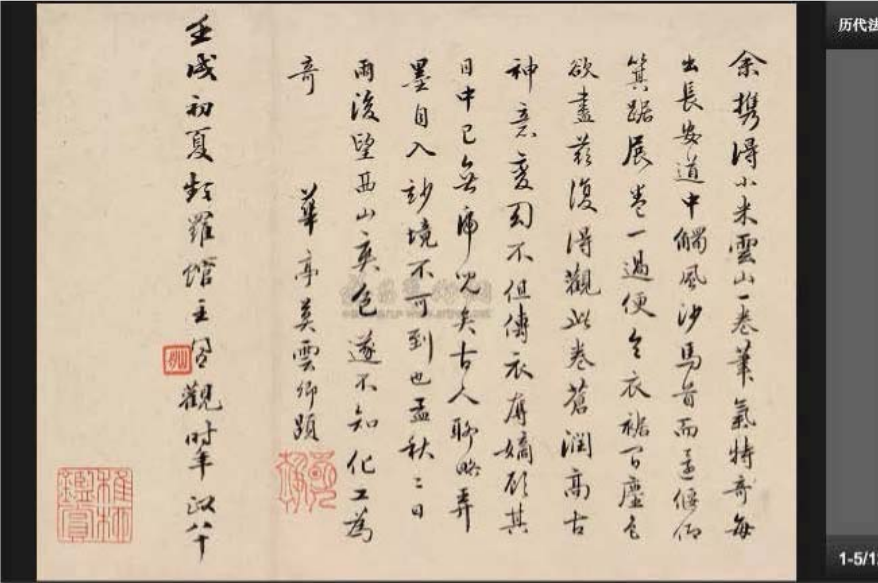 余携得小米雲山一卷筆氣特奇每
出長安道中觸風沙馬首而還偃仰
箕踞展卷一過便令衣裾間塵色
欲盡茲復得觀此卷蒼潤高古
神意變幻不但傳衣有嫡顧其
目中已無虎兒矣古人聊略弄
墨自入妙境不可到也孟秋二日
雨後望西山爽色遂不知化工為
奇
華亭莫雲卿題
壬戌初夏
羅館主
觀時年政八十
雅
鑑賞
历代法
1-5/1